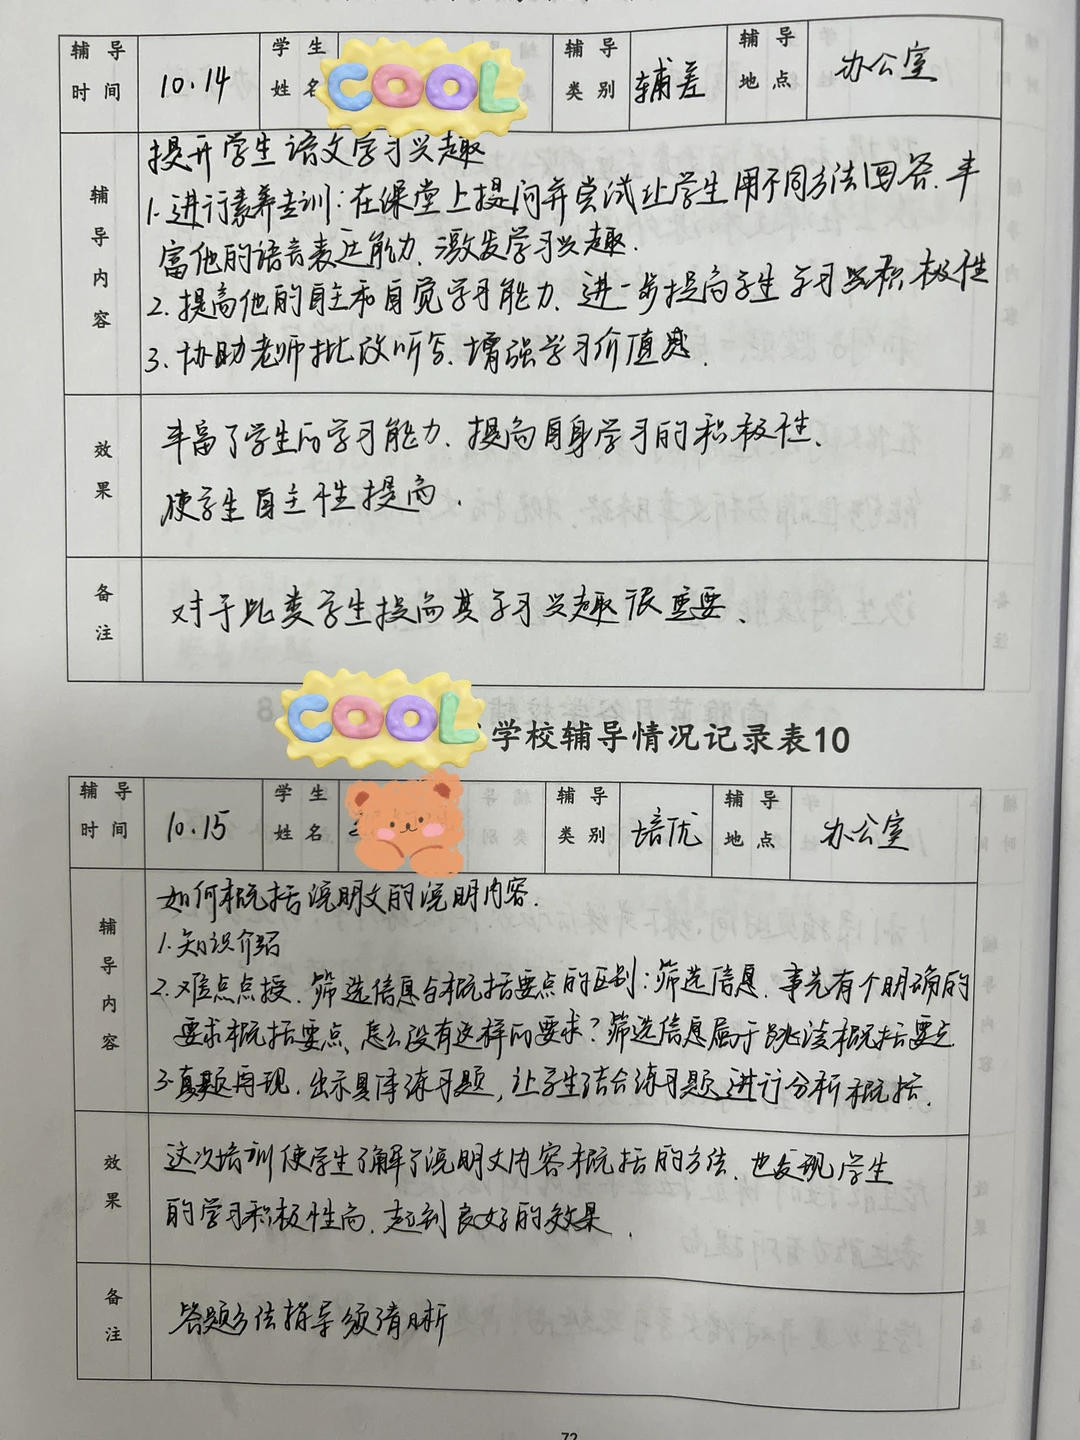 辅导时间 10.14 学生姓名 COOL 辅导类别 辅差 辅导地点 办公室
辅导内容
提升学生语文学习兴趣
1.进行素养专训:在课堂上提问并尝试让学生用不同方法回答、丰
富他的语言表达能力、激发学习兴趣.
2.提高他的自主和自觉学习能力、进一步提高学生学习积极性
3.协助老师批改听写、增强学习价值感.
效果
丰富了学生的学习能力、提高自身学习的积极性、
使学生自主性提高.
备注
对于此类学生提高其学习兴趣很重要、
COOL 学校辅导情况记录表10
辅导时间 10.15 学生姓名 辅导类别 培优 辅导地点 办公室
辅导内容
如何概括说明文的说明内容.
1.知识介绍
2.难点点授、筛选信息与概括要点的区别:筛选信息、事先有个明确的
要求概括要点、怎么没有这样的要求?筛选信息属于概括要点
3.真题再现、出示具体练习题,让学生结合练习题进行分析概括.
效果
这次培训使学生了解了说明文内容概括的方法、也发现学生
的学习积极性高、起到良好的效果.
备注
答题方法指导须清晰
72